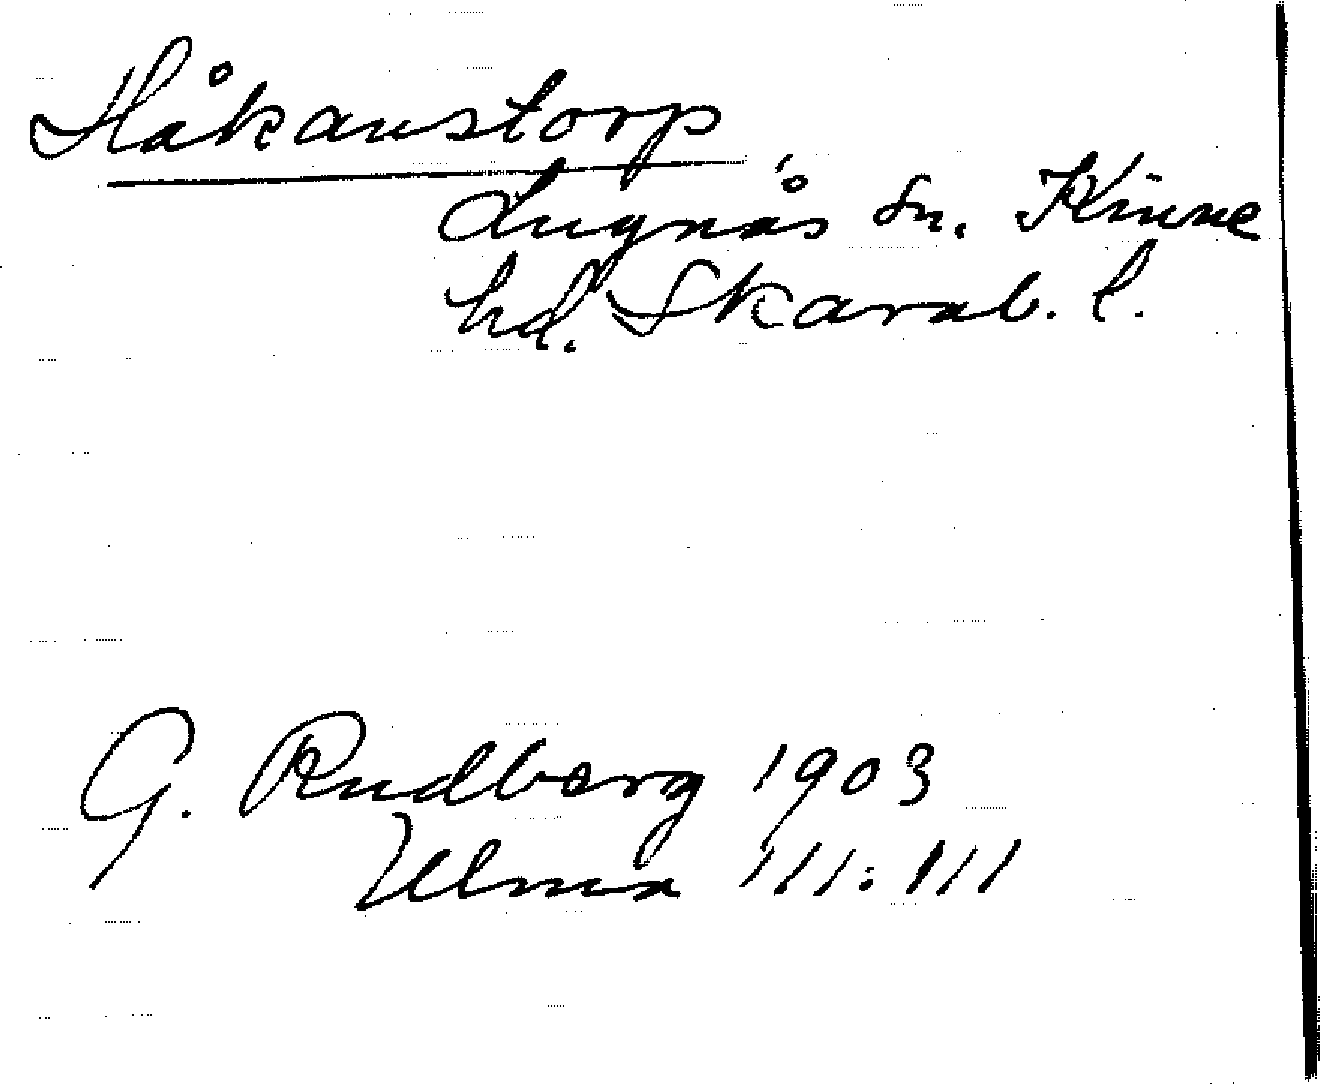 Håkanstorp
Lugnås sn. Kinne
hd. Skarab. l.
G. Rudberg 1903
Ulma 111:111